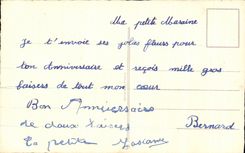 Ma petite Marraine
Je t'envoie ses jolies fleurs pour
ton Anniversaire et reçois mille gros
baisers de tout mon cœur
Bon Anniversaire
de doux baisers
Bernard
ta petite